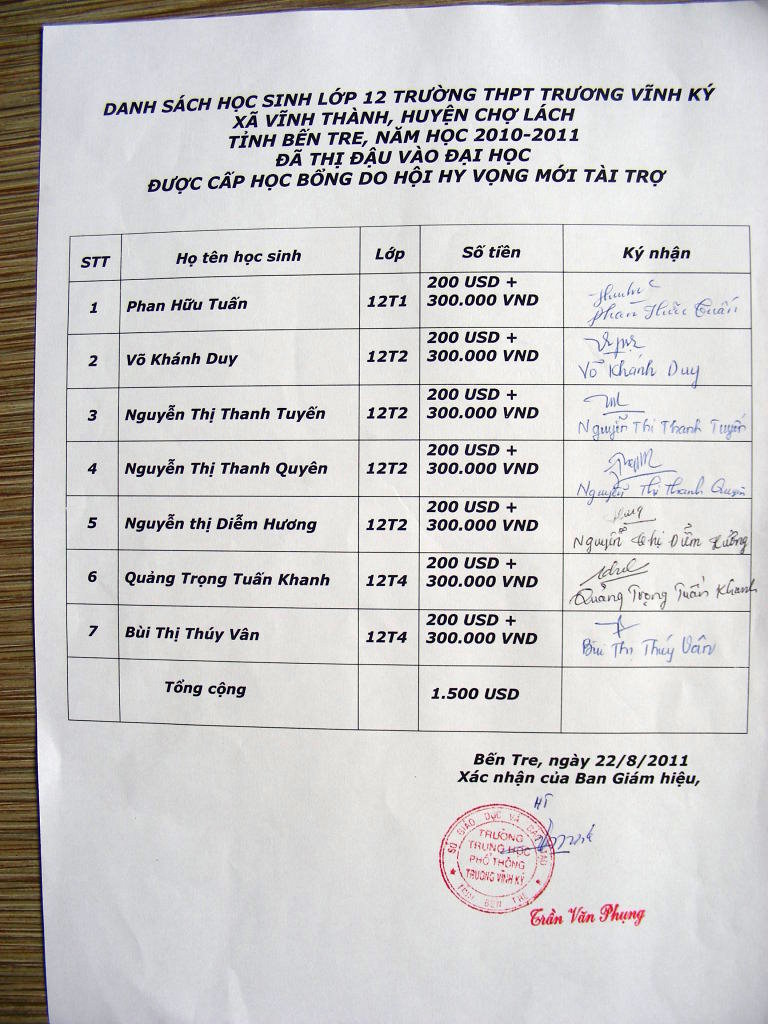 DANH SÁCH HỌC SINH LỚP 12 TRƯỜNG THPT TRƯƠNG VĨNH KÝ
XÃ VĨNH THÀNH, HUYỆN CHỢ LÁCH
TỈNH BẾN TRE, NĂM HỌC 2010-2011
ĐÃ THỊ ĐẬU VÀO ĐẠI HỌC
ĐƯỢC CẤP HỌC BỔNG DO HỘI HY VỌNG MỚI TÀI TRỢ
STT Họ tên học sinh Lớp Số tiền Ký nhận
1 Phan Hữu Tuấn 12T1 200 USD + 300.000 VND Phan Hữu Tuấn
2 Võ Khánh Duy 12T2 200 USD + 300.000 VND Võ Khánh Duy
3 Nguyễn Thị Thanh Tuyến 12T2 200 USD + 300.000 VND Nguyễn Thị Thanh Tuyến
4 Nguyễn Thị Thanh Quyên 12T2 200 USD + 300.000 VND Nguyễn Thị Thanh Quyên
5 Nguyễn thị Diễm Hương 12T2 200 USD + 300.000 VND Nguyễn Thị Diễm Hương
6 Quảng Trọng Tuấn Khanh 12T4 200 USD + 300.000 VND Quảng Trọng Tuấn Khanh
7 Bùi Thị Thúy Vân 12T4 200 USD + 300.000 VND Bùi Thị Thúy Vân
Tổng cộng 1.500 USD
Bến Tre, ngày 22/8/2011
Xác nhận của Ban Giám hiệu,
HT
SỞ GIÁO DỤC VÀ ĐÀO TẠO
TRƯỜNG
TRUNG HỌC
PHỔ THÔNG
TRƯƠNG VĨNH KÝ
TỈNH BẾN TRE
Trần Văn Phụng